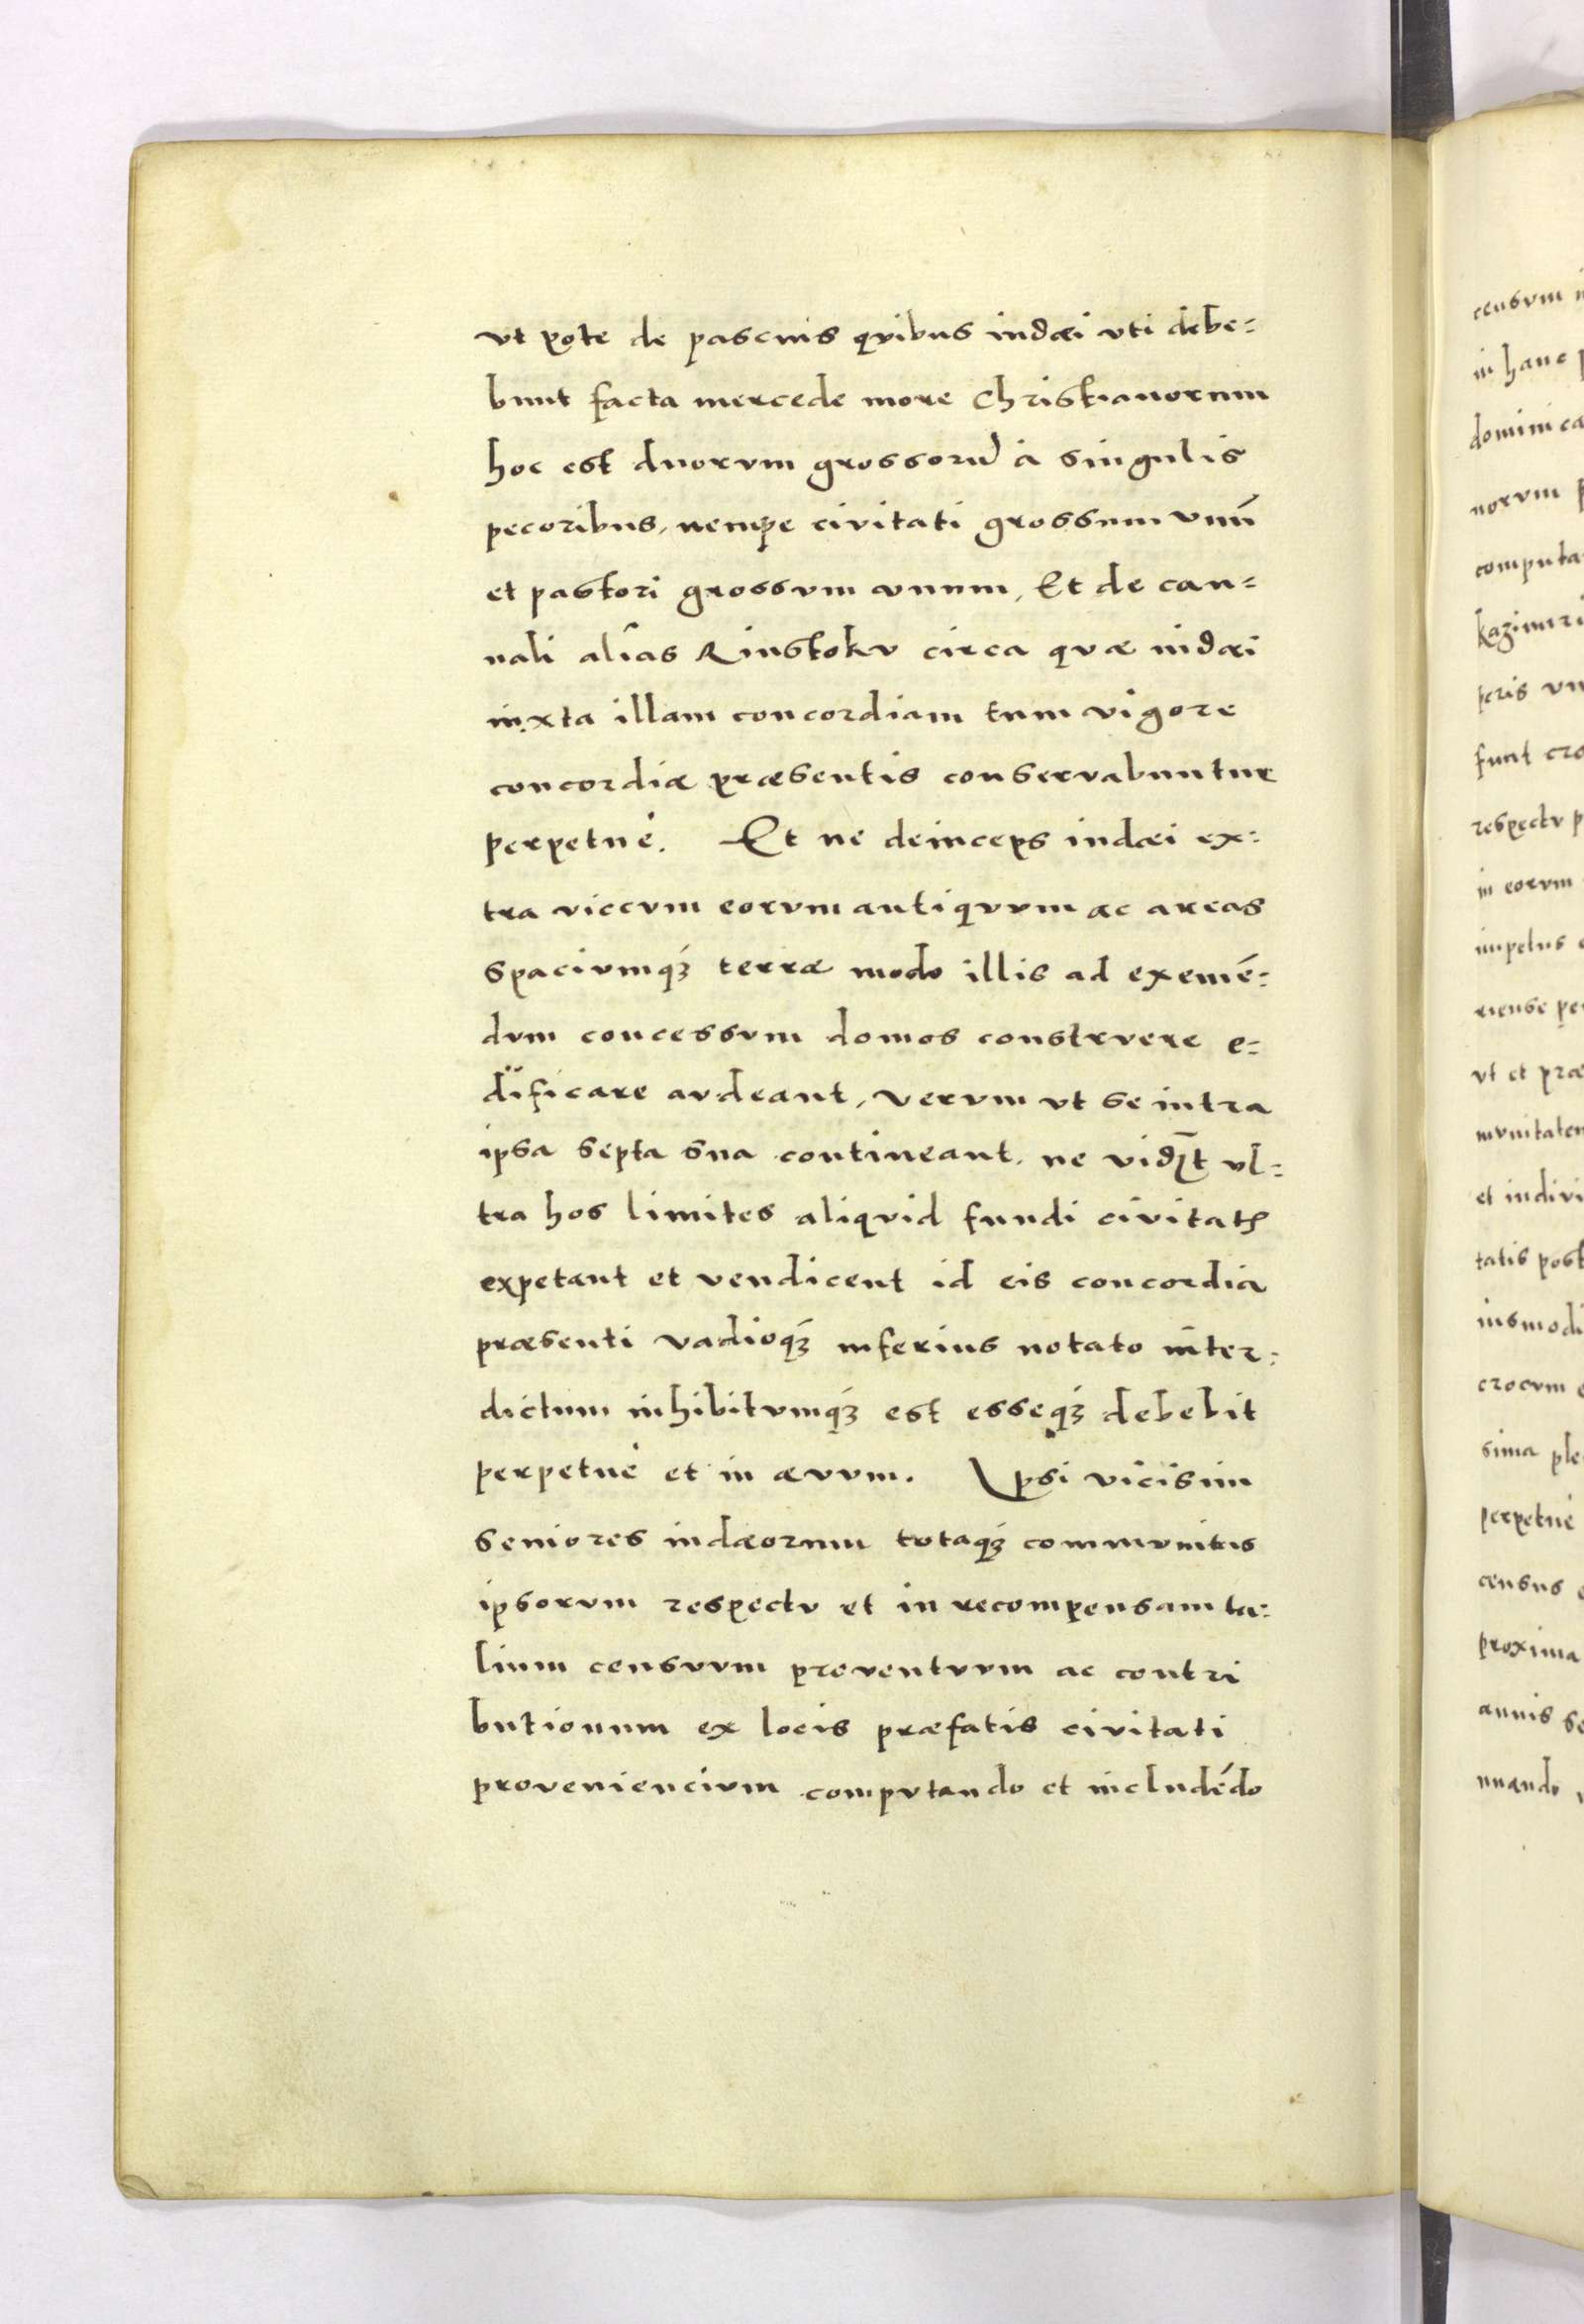 vt pote de pascuis qvibus iudæi vti debe=
bunt facta mercede more Christianorum
hoc est duorvm grossorū à singulis
pecoribus, nempe civitati grossum vnū
et pastori grossvm vnum, Et de can=
nali aliâs Rinstokv circa quæ iudæi
iuxta illam concordiam tum vigore
concordiæ præsentis conservabuntur
perpetuè. Et ne deinceps iudæi ex=
tra viccvm eorvm antiqvvm ac areas
spacivmq́ȝ terræ modo illis ad exemē=
dvm concessvm domos constrvere e=
dificare avdeant, vervm vt se intra
ipsa septa sua contineant. ne vidꝫt vl=
tra hos limites aliqvid fundi civitatꝭ
expetant et vendicent id eis concordia
præsenti vadioq́ȝ inferius notato inter=
dictum inhibitvmq́ȝ est esseq́ȝ debebit
perpetuè et in ævvm. Ipsi vicisim
seniores iudæorum totaq́ȝ commvnitas
ipsorvm respectv et in recompensam ta=
lium censvvm proventvvm ac contri
butionum ex locis præfatis civitati
proveniencivm compvtando et includēdo
censvm
in hanc
dominica
norvm
computa
kazimiri
peris vn
funt cro
respectv p
in eorvm
impetus
riense per
vt et præ
mvnitatem
et indivi
tatis post
iusmodi
crocvm
sima ple
perpetuè
census
proxima
annis se
nuando